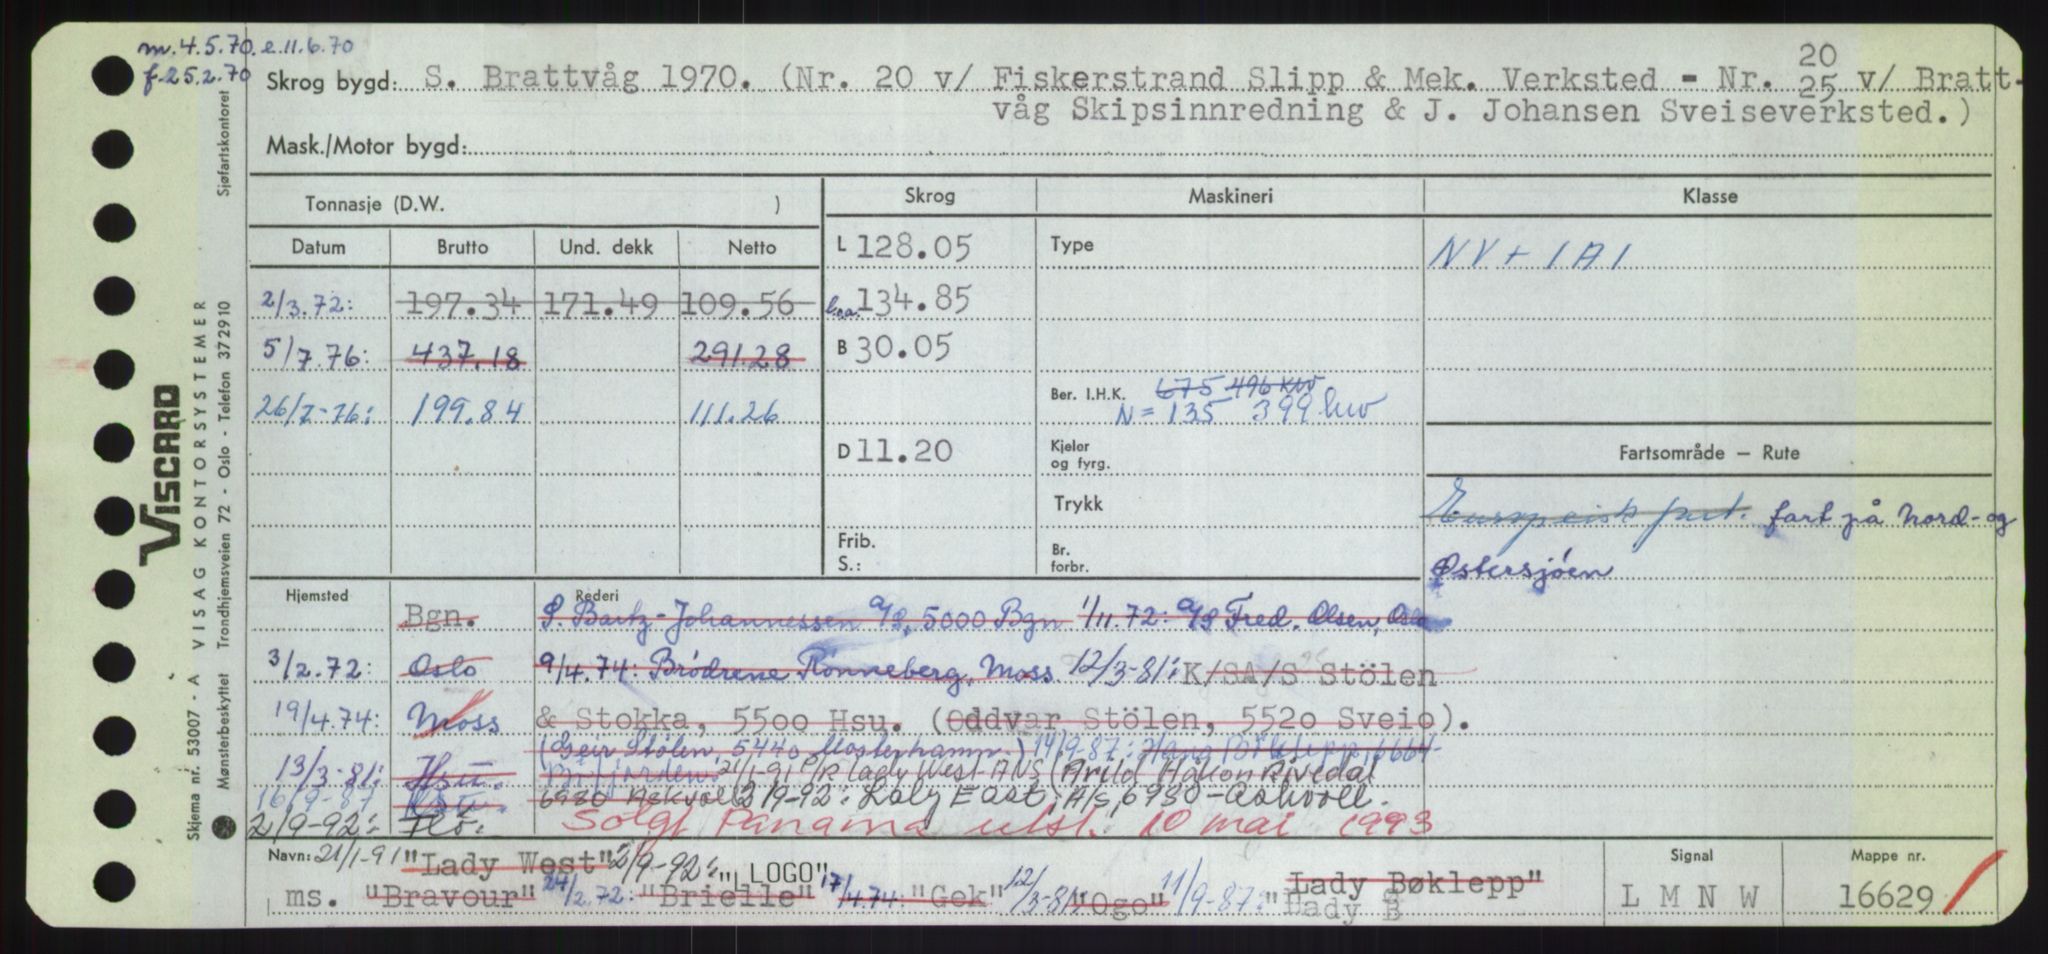 m. 4.5.70. e. 11.6.70
f. 25.2.70
Skrog bygd: S. Brattvåg 1970. (Nr. 20 v/ Fiskerstrand Slipp & Mek. Verksted - Nr. 20 25 v/ Bratt-
våg Skipsinnredning & J. Johansen Sveiseverksted.)
Mask./Motor bygd:
Tonnasje (D.W. )
Skrog Maskineri Klasse
Datum Brutto Und. dekk Netto
L 128.05 Type NV + 1A1
2/3.72: 197.34 171.49 109.56 l.o.a. 134.85
5/7.76: 437.18 291.28 B 30.05
Ber. I.H.K. 675 496 KW
26/7-76: 199.84 111.26 N = 135 399 kw
D 11.20 Kjeler og fyrg. Fartsområde — Rute
Trykk Europeisk fart. fart på Nord- og
Frib. S.: Br. forbr. Østersjøen
Hjemsted Rederi
Bgn. P. Bartz-Johannessen A/S, 5000 Bgn 1/11.72: A/S Fred. Olsen, Oslo
3/2.72: Oslo 9/4.74: Brödrene Rönneberg, Moss 12/3-81: K/SA/S Stölen
19/4.74: Moss & Stokka, 5500 Hsu. (Oddvar Stölen, 5520 Sveio).
(Geir Stölen, 5440 Mosterhamn.) 14/9-87: Hans Böklepp, 6664
13/3-81: Hsu. 21/1-91 P/R Lady West ANS (Arild Håkon Rivedal
16/9-87 6980 Askvoll) 2/9-92: Lady East A/S, 6980-Askvoll.
2/9-92: Flö. Solgt Panama utsl. 10 mai 1993
Navn: 21/1-91 "Lady West" 2/9-92: "LOGO" Signal Mappe nr.
ms. "Bravour" 24/2.72: "Brielle" 17/4.74: "Gek" 12/3-81: "Ogo" 11/9-87: "Lady B Lady Bøklepp" LMNW 16629
Sjøfartskontoret
VISCARD
VISAG KONTORSYSTEMER
Skjema nr. 53007 - A
Mønsterbeskyttet Trondhjemsveien 72 - Oslo - Telefon 372910